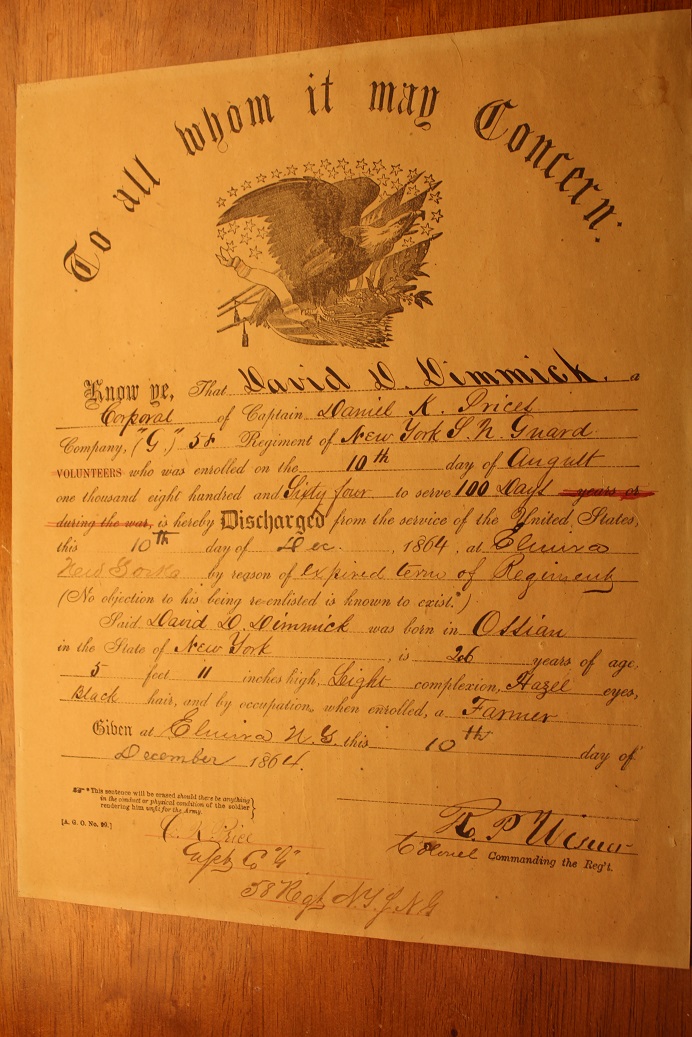 To all whom it may Concern:
Know ye, That David D. Dimmick. a
Corporal of Captain Daniel K. Prices
Company, ("G.") 58 Regiment of New York S. N. Guard
VOLUNTEERS who was enrolled on the 10th day of August
one thousand eight hundred and Sixty four to serve 100 Days years or
during the war, is hereby Discharged from the service of the United States,
this 10th day of Dec. , 1864, at Elmira
New York by reason of expired term of Regiment
(No objection to his being re-enlisted is known to exist.*)
Said David D. Dimmick was born in Ossian
in the State of New York , is 26 years of age,
5 feet 11 inches high, Leight complexion, Hazel eyes,
Black hair, and by occupation, when enrolled, a Farmer
Given at Elmira N.Y. this 10th day of
December 1864.
*This sentence will be erased should there be anything
in the conduct or physical condition of the soldier
rendering him unfit for the Army.
[A. G. O. No. 99.]
Price
Capt Co "G"
58 Regt N.Y.S.N.G
R. P. Wisner
Colonel Commanding the Reg't.